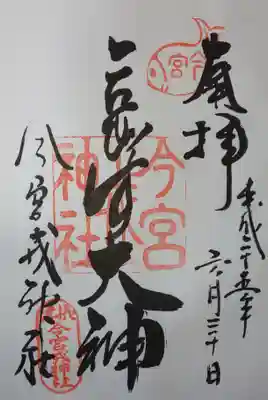 奉拝
平成二十五年
六月三十日
大神
今宮戎神社
今宮
今宮
神社
今宮戎神社